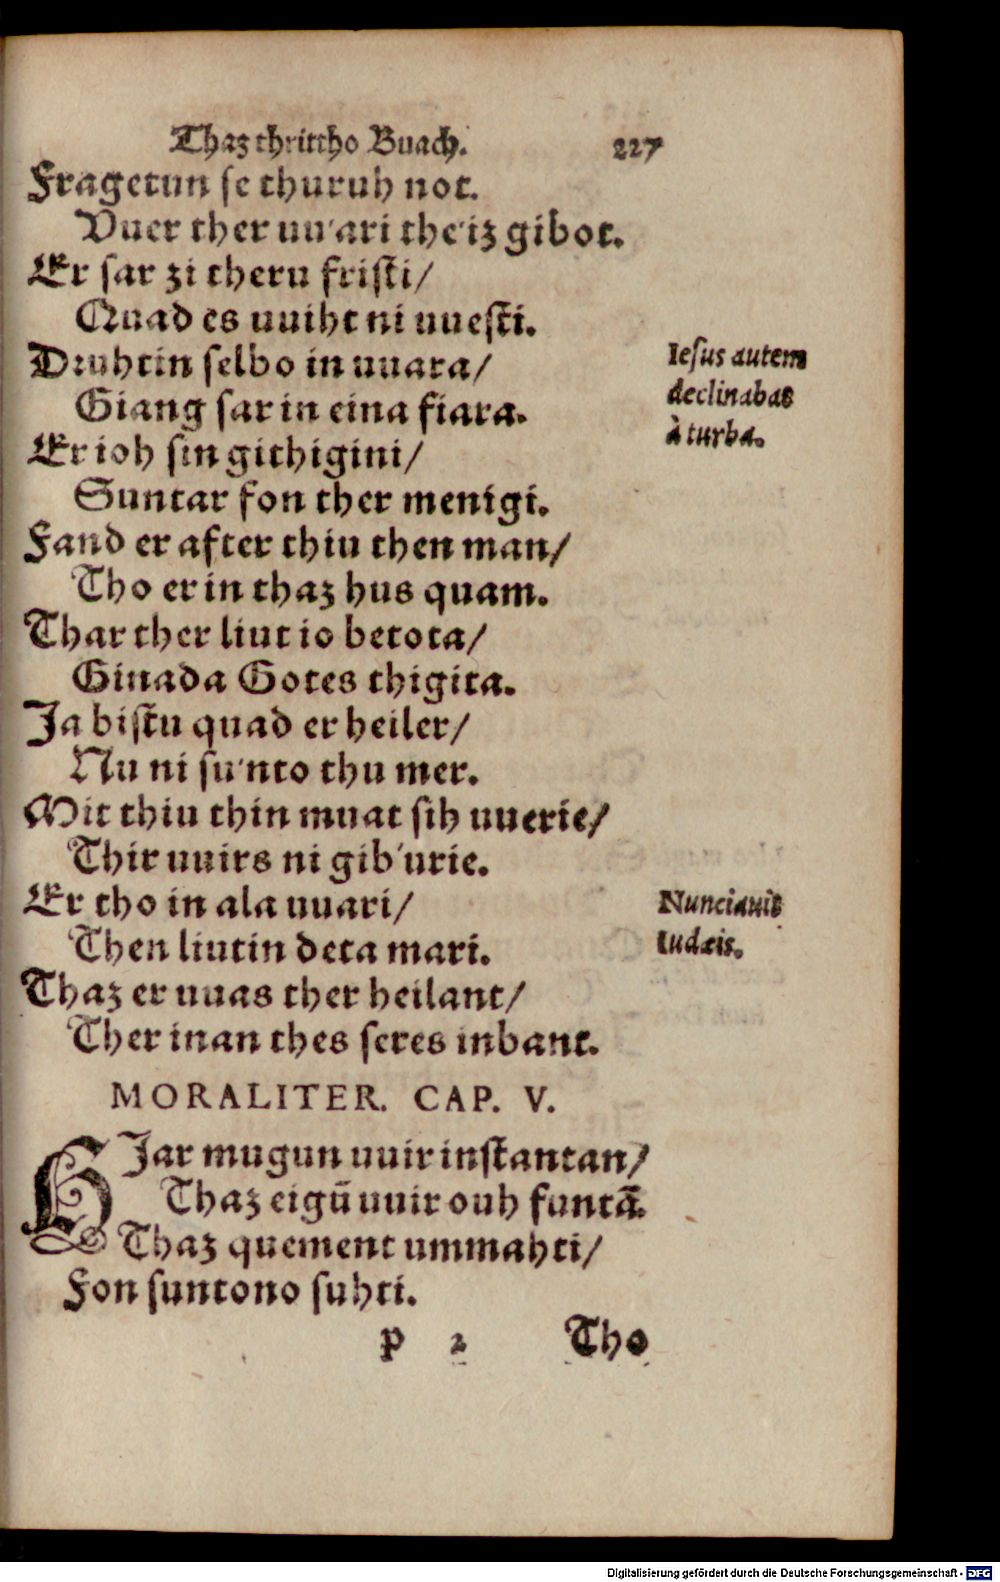 Thaz thrittho Buach. 227
Fragetun se thuruh not.
Vuer ther uu'ari the'iz gibot.
Er sar zi theru fristi/
Quad es uuiht ni uuesti.
Druhtin selbo in uuara/
Giang sar in eina fiara.
Er ioh sin githigini/
Suntar fon ther menigi.
Fand er after thiu then man/
Tho er in thaz hus quam.
Thar ther liut io betota/
Ginada Gotes thigita.
Ja bistu quad er heiler/
Nu ni su'nto thu mer.
Mit thiu thin muat sih uuerie/
Thir uuirs ni gib'urie.
Er tho in ala uuari/
Then liutin deta mari.
Thaz er uuas ther heilant/
Ther inan thes seres inbant.
Iesus autem
declinabas
à turba.
Nunciauit
Iudæis.
MORALITER. CAP. V.
HJar mugun uuir instantan/
Thaz eigū uuir ouh funtā.
Thaz quement ummahti/
Fon suntono suhti.
P 2 Tho
Digitalisierung gefördert durch die Deutsche Forschungsgemeinschaft - DFG